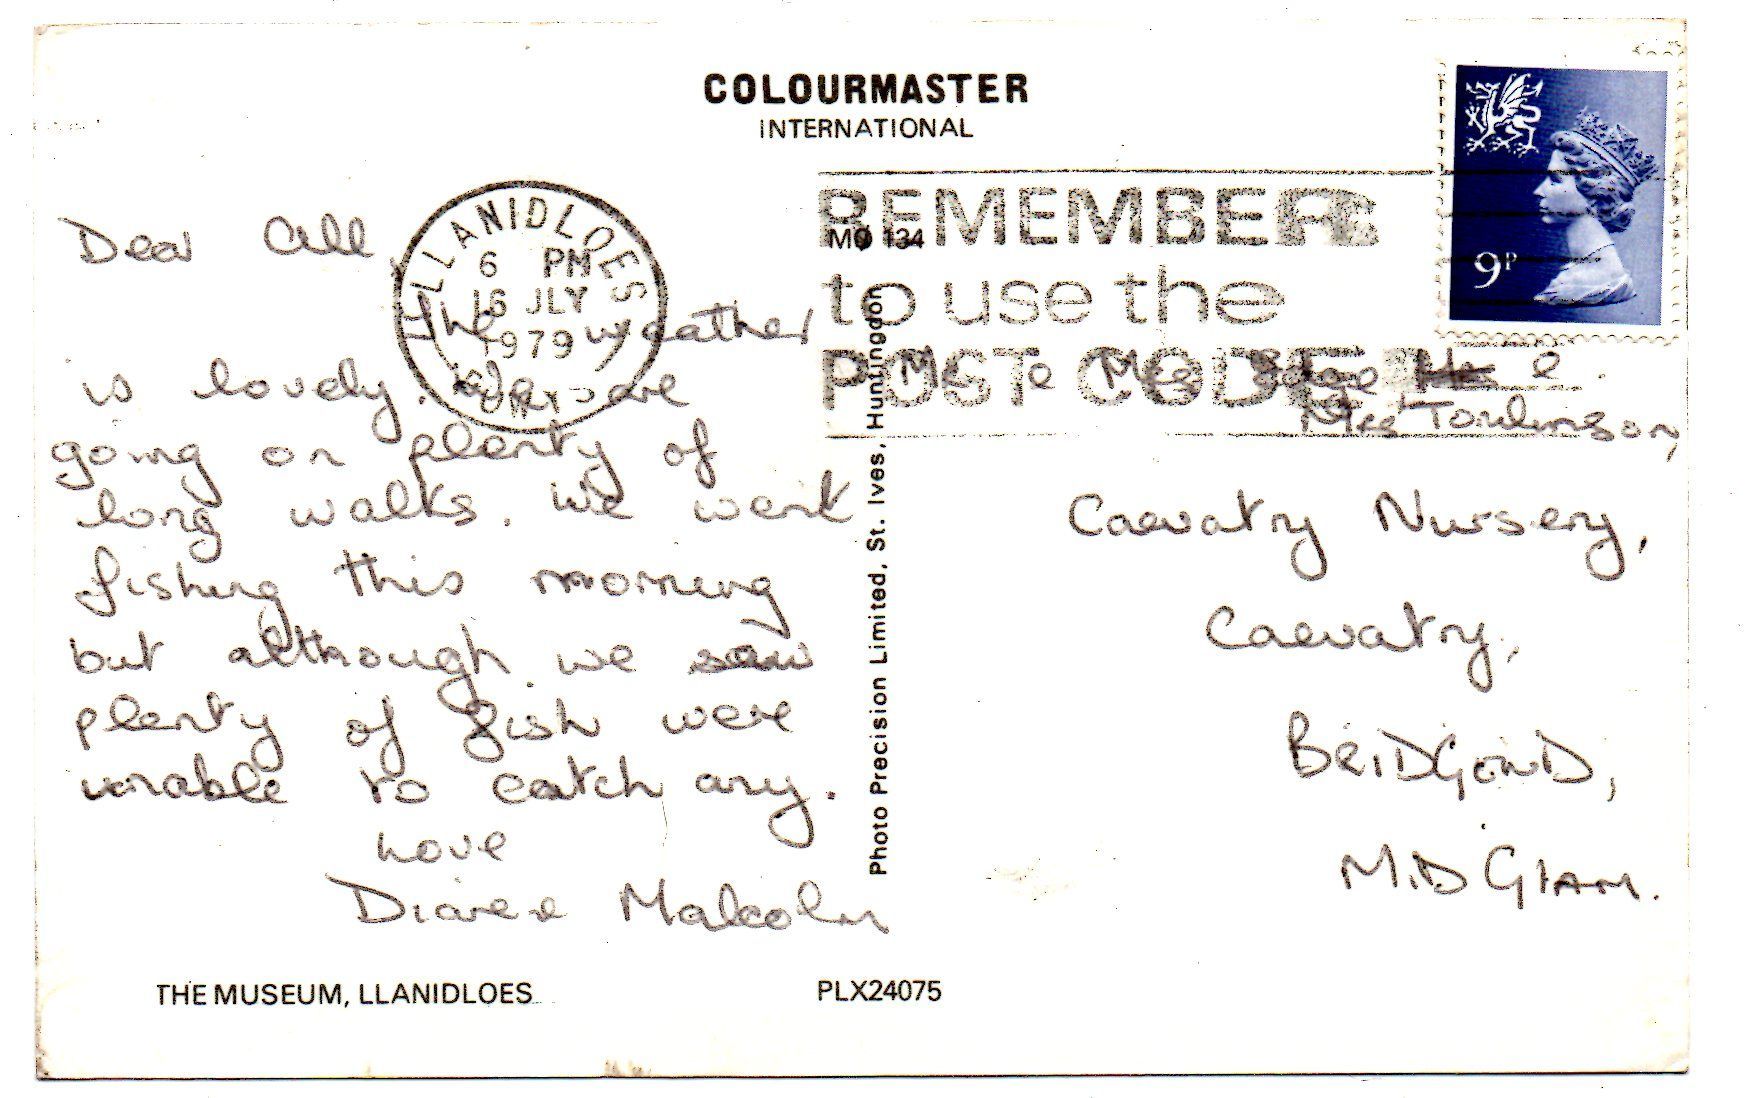 COLOURMASTER
INTERNATIONAL
LLANIDLOES
6 PM
16 JLY
1979
REMEMBER
to use the
POST CODE
MO 134
9P
Dear All,
The weather
is lovely. We are
going on plenty of
long walks. We went
fishing this morning
but although we saw
plenty of fish were
unable to catch any.
Love
Diane e Malcolm
Mr e Mrs e
Mrs Tomlinson,
Caewatry Nursery,
Caewatry,
BRIDGEND,
MID GLAM.
Photo Precision Limited, St. Ives, Huntingdon
THE MUSEUM, LLANIDLOES
PLX24075